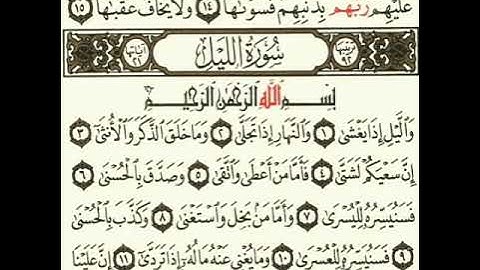 عَلَيْهِمْ رَبُّهُم بِذَنۢبِهِمْ فَسَوَّىٰهَا ١٤ وَلَا يَخَافُ عُقْبَٰهَا ١٥
ترتيبها ٩٢ سُورَةُ اللَّيْلِ آياتها ٢١
بِسْمِ اللَّهِ الرَّحْمَٰنِ الرَّحِيمِ
وَالَّيْلِ إِذَا يَغْشَىٰ ١ وَالنَّهَارِ إِذَا تَجَلَّىٰ ٢ وَمَا خَلَقَ الذَّكَرَ وَالْأُنثَىٰ ٣
إِنَّ سَعْيَكُمْ لَشَتَّىٰ ٤ فَأَمَّا مَنْ أَعْطَىٰ وَاتَّقَىٰ ٥ وَصَدَّقَ بِالْحُسْنَىٰ ٦
فَسَنُيَسِّرُهُ لِلْيُسْرَىٰ ٧ وَأَمَّا مَنۢ بَخِلَ وَاسْتَغْنَىٰ ٨ وَكَذَّبَ بِالْحُسْنَىٰ
٩ فَسَنُيَسِّرُهُ لِلْعُسْرَىٰ ١٠ وَمَا يُغْنِي عَنْهُ مَالُهُ إِذَا تَرَدَّىٰ ١١ إِنَّ عَلَيْنَا